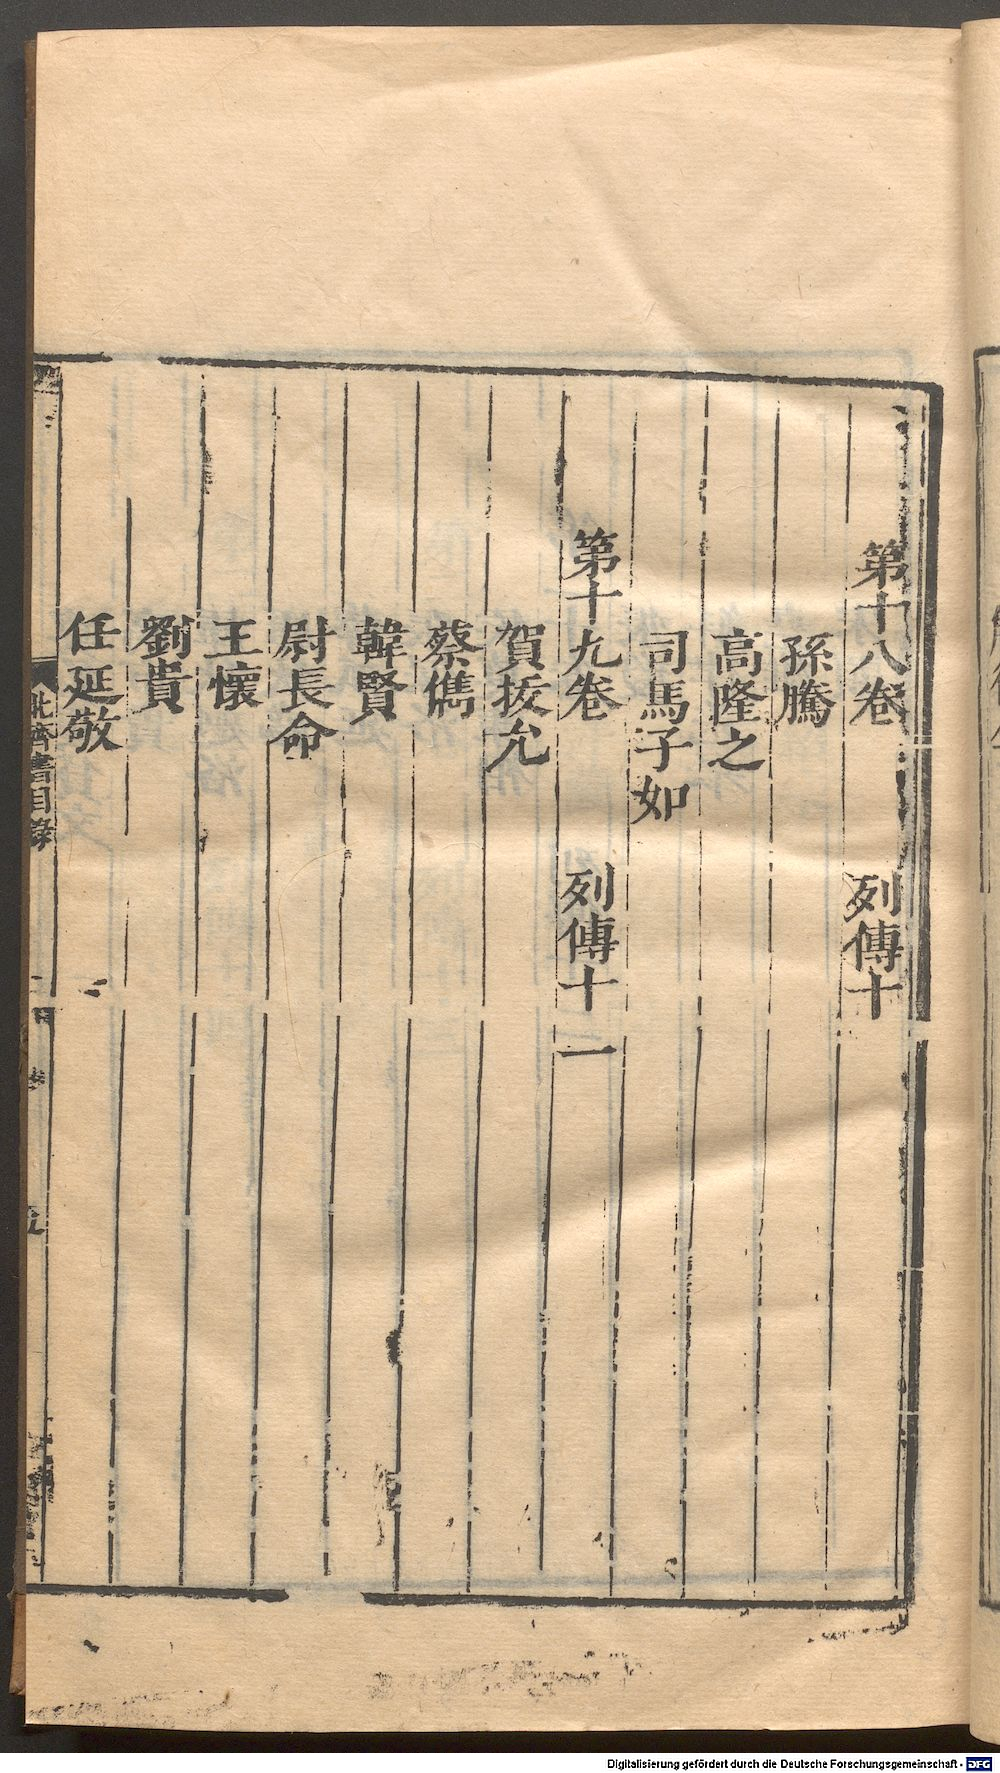 第十八卷 列傳十
孫騰
高隆之
司馬子如
第十九卷 列傳十一
賀拔允
蔡儁
韓賢
尉長命
王懷
劉貴
任延敬
北齊書目錄
Digitalisierung gefördert durch die Deutsche Forschungsgemeinschaft - DFG